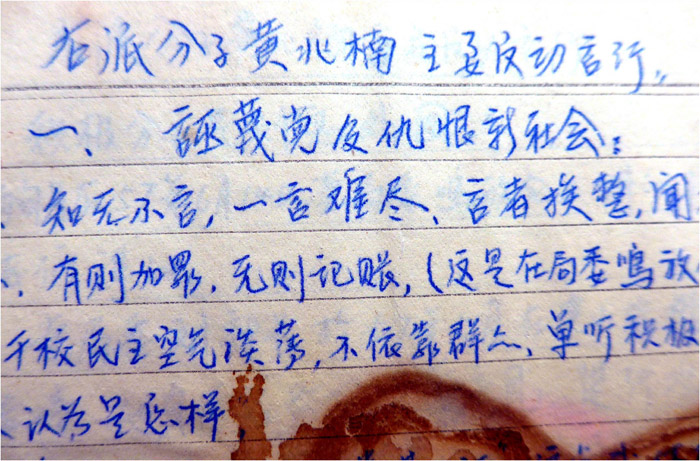 右派分子黄兆楠主要反动言行。
一、 诬蔑党及仇恨新社会：
、知无不言，一言难尽、言者挨整，闻
、有则加罪，无则记账，（这是在局委鸣放
干校民主空气淡薄，不依靠群众、单听积极
、认为是怎样